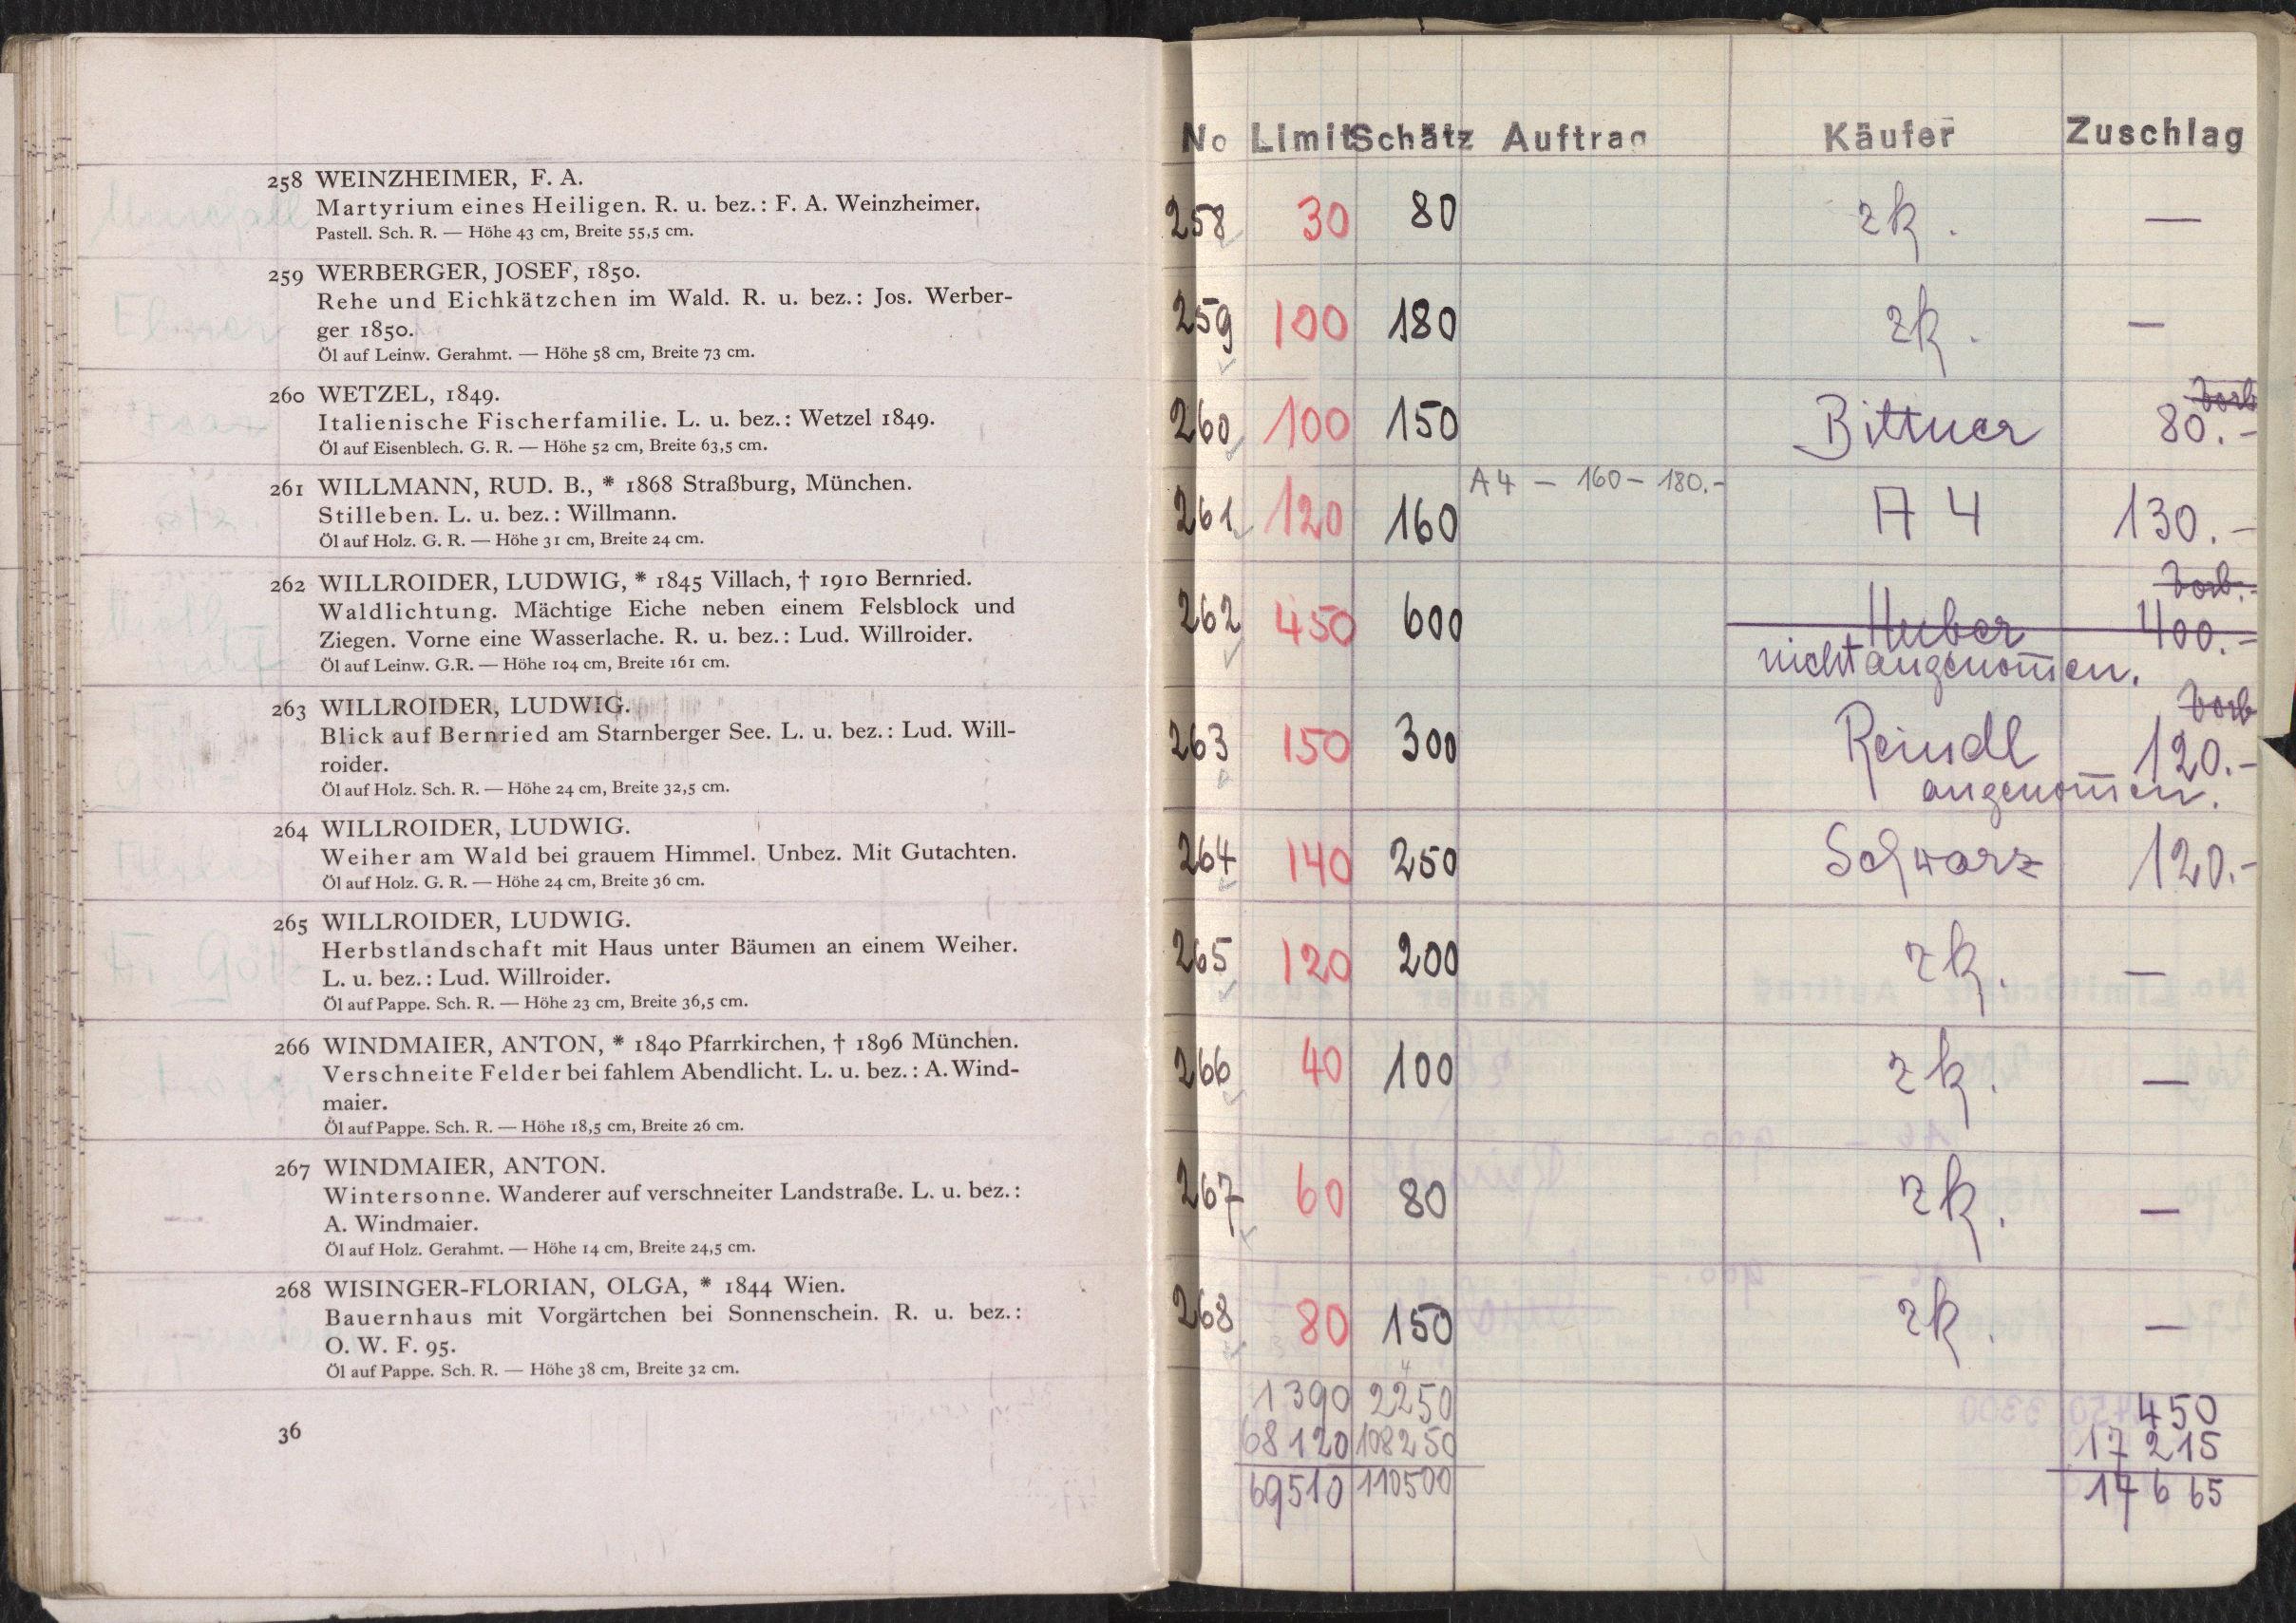 258 WEINZHEIMER, F. A.
Martyrium eines Heiligen. R. u. bez.: F. A. Weinzheimer.
Pastell. Sch. R. — Höhe 43 cm, Breite 55,5 cm.
259 WERBERGER, JOSEF, 1850.
Rehe und Eichkätzchen im Wald. R. u. bez.: Jos. Werber-
ger 1850.
Öl auf Leinw. Gerahmt. — Höhe 58 cm, Breite 73 cm.
260 WETZEL, 1849.
Italienische Fischerfamilie. L. u. bez.: Wetzel 1849.
Öl auf Eisenblech. G. R. — Höhe 52 cm, Breite 63,5 cm.
261 WILLMANN, RUD. B., * 1868 Straßburg, München.
Stilleben. L. u. bez.: Willmann.
Öl auf Holz. G. R. — Höhe 31 cm, Breite 24 cm.
262 WILLROIDER, LUDWIG, * 1845 Villach, † 1910 Bernried.
Waldlichtung. Mächtige Eiche neben einem Felsblock und
Ziegen. Vorne eine Wasserlache. R. u. bez.: Lud. Willroider.
Öl auf Leinw. G.R. — Höhe 104 cm, Breite 161 cm.
263 WILLROIDER, LUDWIG.
Blick auf Bernried am Starnberger See. L. u. bez.: Lud. Will-
roider.
Öl auf Holz. Sch. R. — Höhe 24 cm, Breite 32,5 cm.
264 WILLROIDER, LUDWIG.
Weiher am Wald bei grauem Himmel. Unbez. Mit Gutachten.
Öl auf Holz. G. R. — Höhe 24 cm, Breite 36 cm.
265 WILLROIDER, LUDWIG.
Herbstlandschaft mit Haus unter Bäumen an einem Weiher.
L. u. bez.: Lud. Willroider.
Öl auf Pappe. Sch. R. — Höhe 23 cm, Breite 36,5 cm.
266 WINDMAIER, ANTON, * 1840 Pfarrkirchen, † 1896 München.
Verschneite Felder bei fahlem Abendlicht. L. u. bez.: A. Wind-
maier.
Öl auf Pappe. Sch. R. — Höhe 18,5 cm, Breite 26 cm.
267 WINDMAIER, ANTON.
Wintersonne. Wanderer auf verschneiter Landstraße. L. u. bez.:
A. Windmaier.
Öl auf Holz. Gerahmt. — Höhe 14 cm, Breite 24,5 cm.
268 WISINGER-FLORIAN, OLGA, * 1844 Wien.
Bauernhaus mit Vorgärtchen bei Sonnenschein. R. u. bez.:
O. W. F. 95.
Öl auf Pappe. Sch. R. — Höhe 38 cm, Breite 32 cm.
36
No Limit Schätz Auftrag Käufer Zuschlag
258 30 80 zk. —
259 100 180 zk. —
Vorb
260 100 150 Bittner 80.-
A4 - 160 - 180.-
261 120 160 A 4 130.-
Vorb.
262 450 600 Huber 400.-
nicht angenommen.
Vorb
263 150 300 Reindl 120.-
angenommen.
264 140 250 Schwarz 120.-
265 120 200 zk. —
266 40 100 zk. —
267 60 80 zk. —
268 80 150 zk. —
1390 2250 450
68120 108250 17215
69510 110500 17665